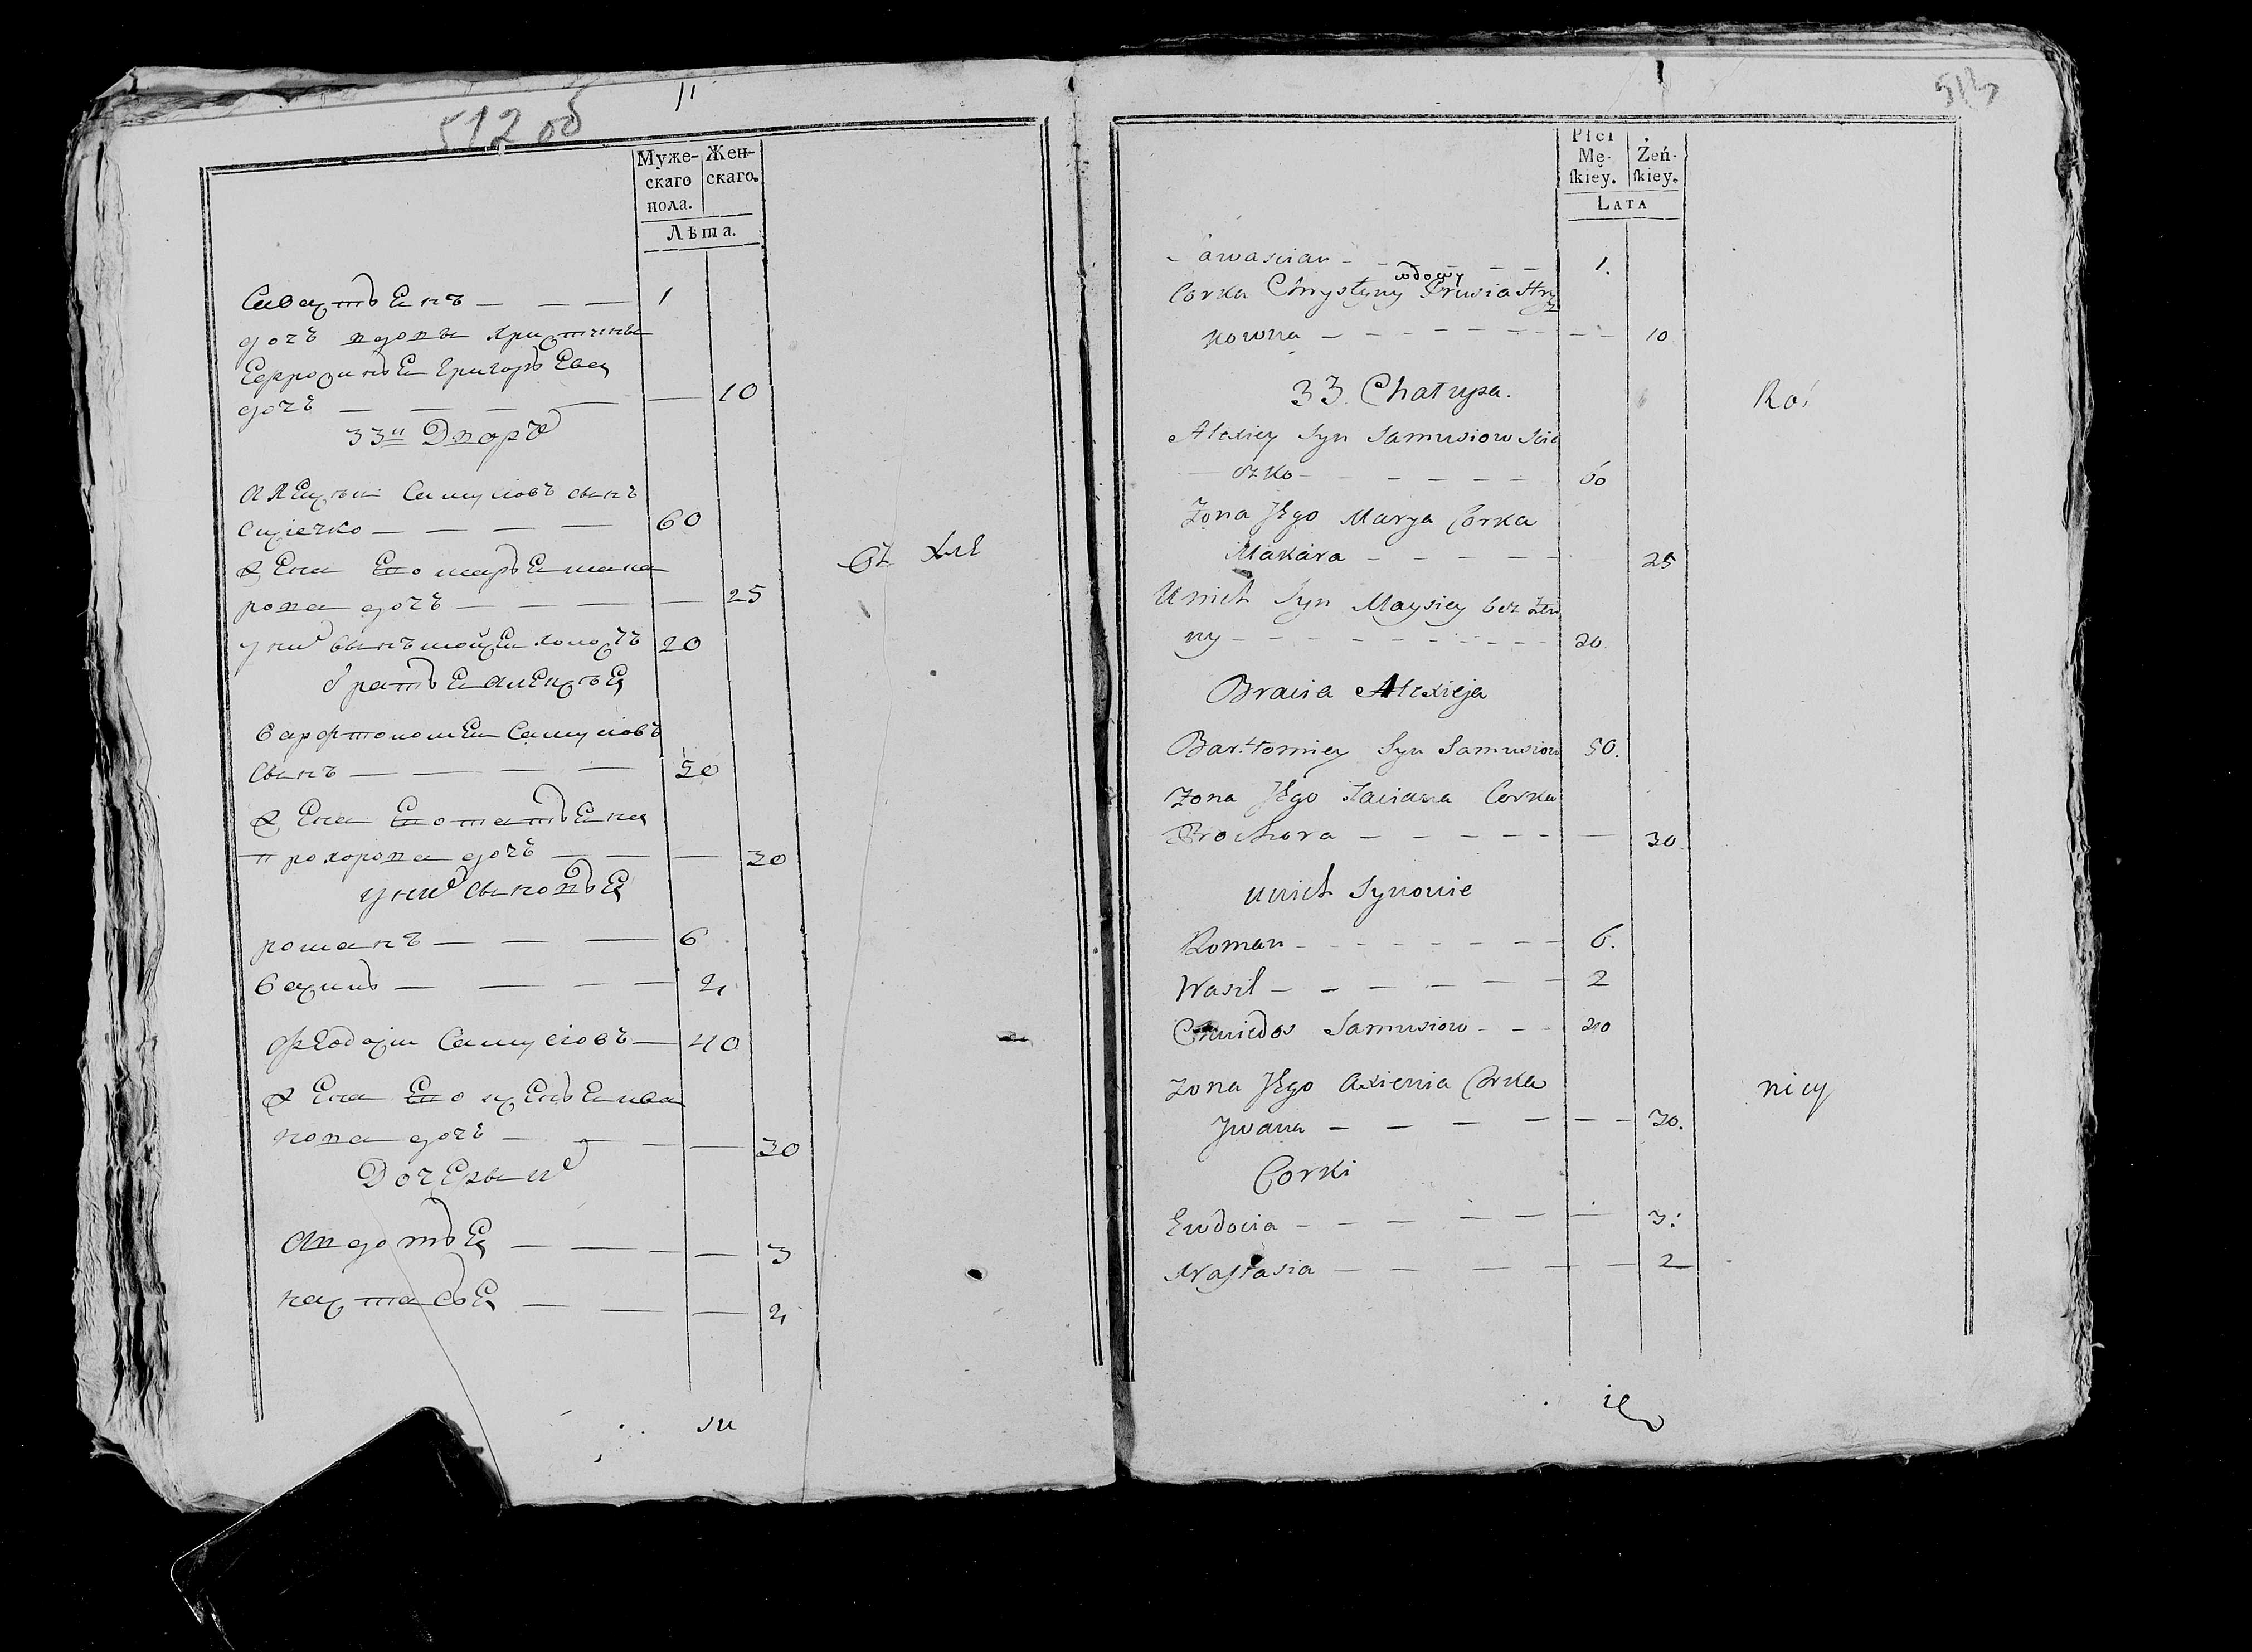 512 об
Муже-
скаго
пола.
Жен-
скаго.
Лѣта.
Савастьянъ — — — 1
дочь вдовы Христины
Ефросинья Григорьева
дочь — — — — — 10
33й Дворъ
Алексѣй Самусіовъ сынъ
Сцiечко — — — — 60
Жена Его марья мака
рова дочь — — — — 25
у них сынъ мойсей холостъ 20
братья алексѣя
варфтоломей Самусіовъ
сынъ — — — — 50
Жена Его татьяна
прохорова дочь — — — 30
у них сыновья
романъ — — — 6
василь — — — — 2
Феодосiй Самусіовъ — 40
Жена Его ксенья ива
нова дочь — — — — 30
Дочеры их
Авдотья — — — — 3
настасья — — — — 2
513
Płci
Mę-
skiey.
Żeń-
skiey.
LATA
Sawascian — — — — — 1.
wdowy
Corka Chrystyny Pruwia Hry
kowna — — — — — — — — 10
33. Chałupa.
Alexiey Syn Samusiow Scie
czko — — — — — — 60
Zona Jego Marya Corka
Makara — — — — — 25
U nich Syn Maysiey bez Zo
ny — — — — — — — — — 20
Bracia Alexieja
Bartłomiey Syn Samusiow 50.
Zona Jego Taciana Corka
Prochora — — — — — — 30
u nich Synowie
Roman — — — — — — — 6.
Wasil — — — — — — — 2
Chwiedos Samusiow — — — 40
Zona Jego Axienia Corka
Jwana — — — — — — — 30.
Corki
Ewdocia — — — — — — — 3.
Nastasia — — — — — — 2